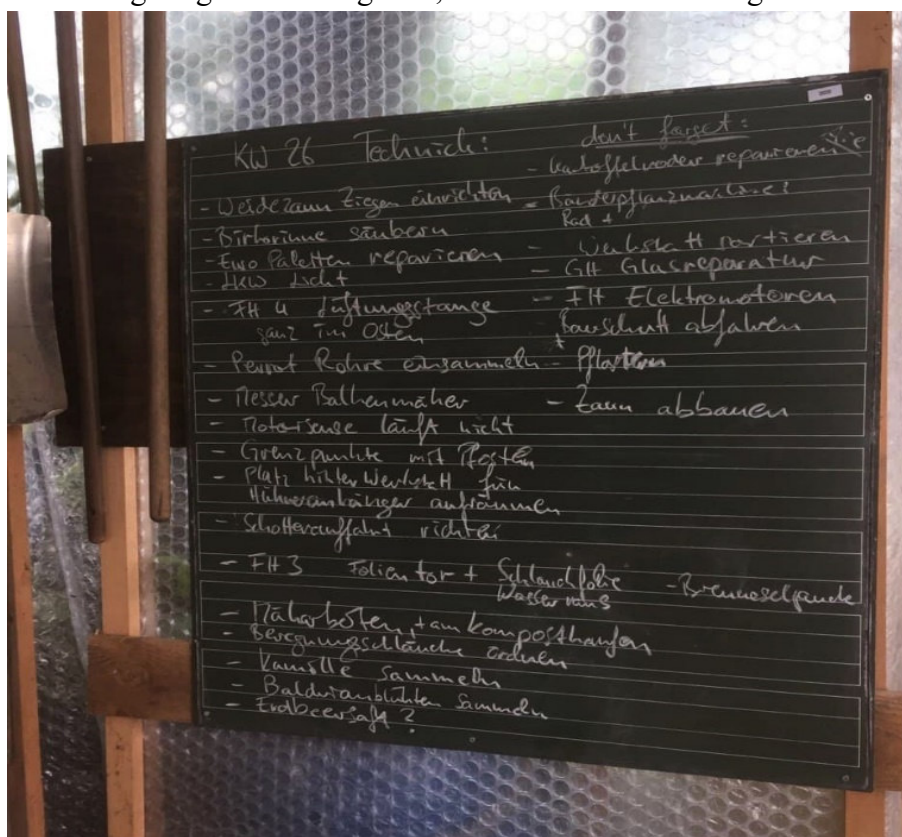 KW 26 Technick:
- Weidezaun Ziegen einrichten
- säubern
- Euro Paletten reparieren
- LKW Licht
- FH 4 Lüftungsstange
ganz im Osten
- Perrot Rohre einsammeln
- Messer Balkenmäher
- Motorsense läuft nicht
- Grenzpunkte mit Pfosten
- Platz hinter Werkstatt für
Hühneranhänger aufräumen
- Schotterauffahrt richten
- FH 3 Folientor + Schlauchfolie
Wasser raus
- Mäharbeiten + am Komposthaufen
- Beregnungsschläuche ordnen
- Kamille sammeln
- Baldrianblühten sammeln
- Erdbeersaft?
don't forget:
- Kartoffelroder reparieren
- Bänderpflanzmaschine!
Rad +
- Werkstatt sortieren
- GH Glasreparatur
- FH Elektromotoren
Bauschutt abfahren
- Pflastern
- Zaun abbauen
- Brennesseljauche